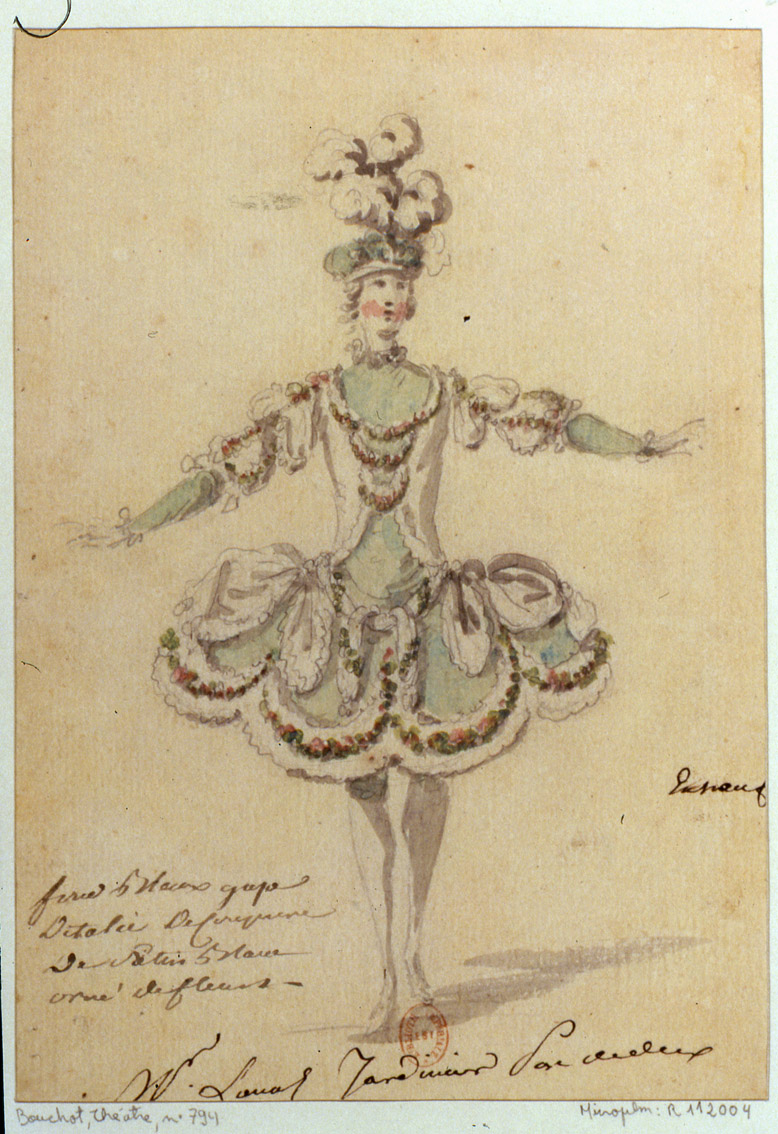 fond blanc gase
Ditalie Decoupure
De Satin blanc
orné de fleurs
Mr. Laval Jardinier Pas de deux
Bouchot, théâtre, n° 794
Microfilm: R 112004